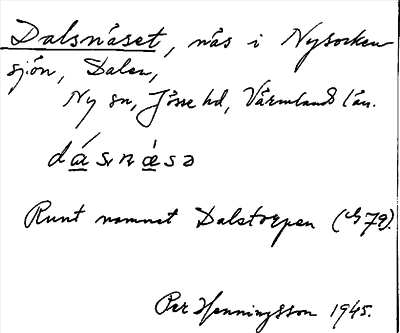 Dalsnäset, näs i Nysocken
sjön, Dalen,
Ny sn, Jösse hd, Värmlands län.
dásnæ̀sə
Runt namnet Dalstorpen (G79).
Per Henningsson 1945.